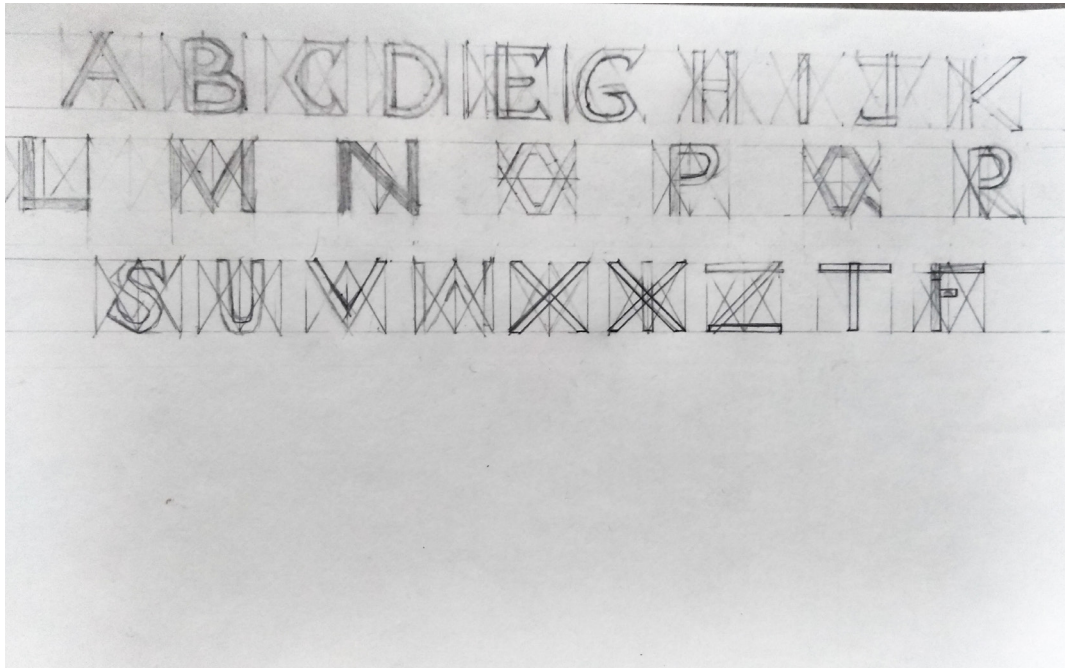 A B C D E G H I J K
L M N O P Q R
S U V W X X Z T F